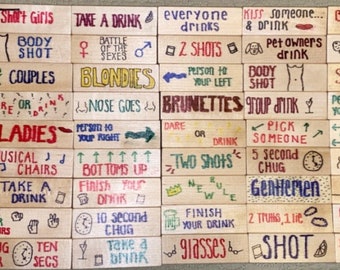 Short Girls
TAKE A DRINK
everyone
drinks
KISS someone...
& DRINK
BODY
SHOT
BATTLE
OF THE
SEXES
2 SHOTS
PET OWNERS
drink
COUPLES
BLONDIES
PERSON to
YOUR LEFT
BODY
SHOT
OR DRINK
NOSE GOES
BRUNETTES
group drink
LADIES
PERSON to
YOUR RIGHT
DARE
OR
DRINK
PICK
SOMEONE
MUSICAL
CHAIRS
BOTTOMS UP
TWO SHOTS
5 second
CHUG
TAKE A
DRINK
FINISH YOUR
DRINK
NEW
RULE
Gentlemen
10 second
CHUG
FINISH
YOUR DRINK
2 Truths, 1 lie
TEN
SECS
Take a
drink
glasses
SHOT